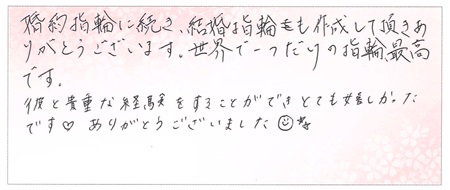 婚約指輪に続き、結婚指輪をも作成して頂きあ
りがとうございます。世界で一つだけの指輪、最高
です。
彼と貴重な経験をすることができとても嬉しかった
です♡ ありがとうございました☺